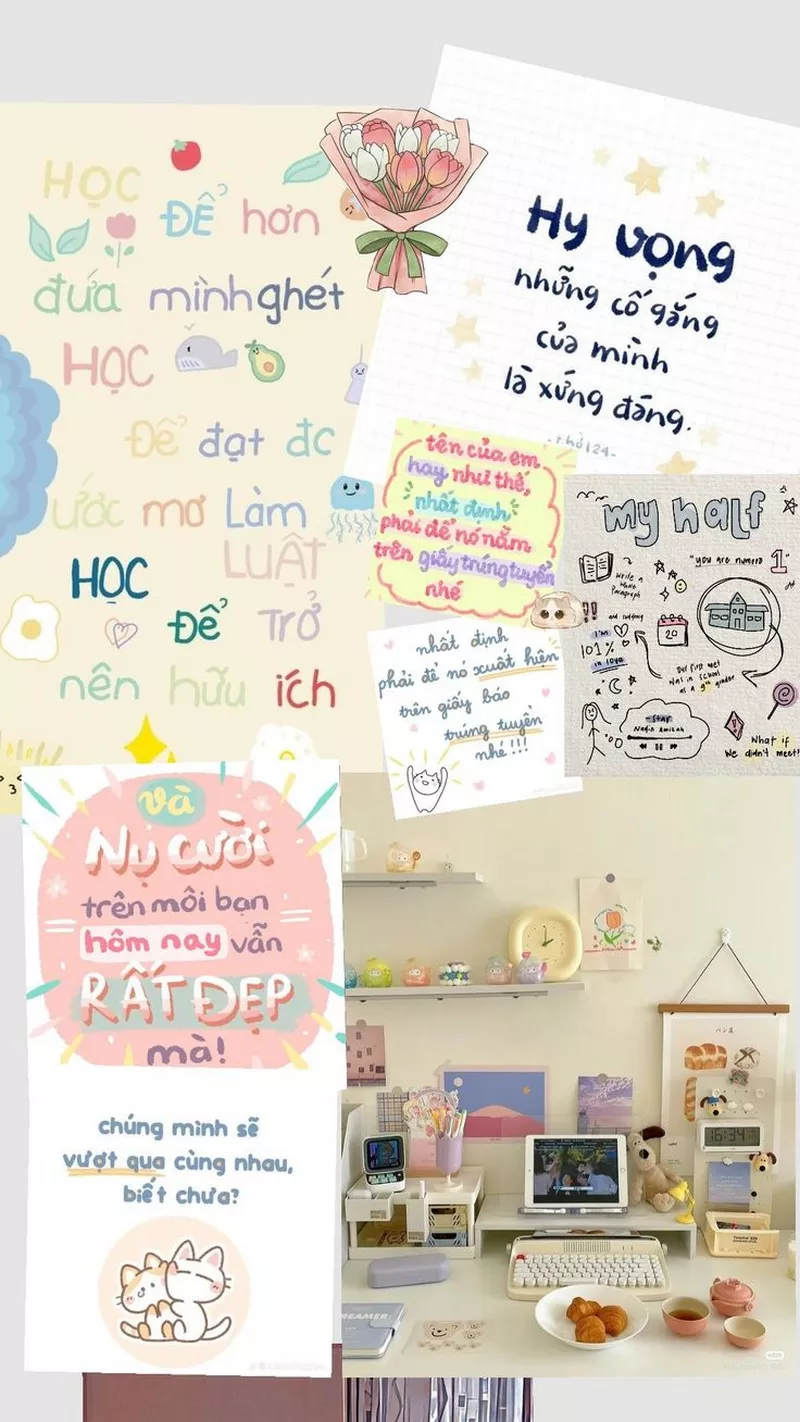 HỌC
ĐỂ hơn
đứa mình ghét
HỌC
Để đạt đc
ước mơ Làm
HỌC LUẬT
Để TRỞ
nên hữu ích
Hy vọng
những cố gắng
của mình
là xứng đáng.
tên của em
hay như thế,
nhất định
phải để nó nằm
trên giấy trúng tuyển
nhé
nhất định
phải để nó xuất hiện
trên giấy báo
trúng tuyển
nhé!!!
my half
"you are numero 1"
write a
whole
Paragraph
!!
and suddenly
I'm
101%
in love
20
Our first met
was in school
as a 9th grader
Stay
What if
We didn't meet?
và
Nụ cười
trên môi bạn
hôm nay vẫn
RẤT ĐẸP
mà!
chúng mình sẽ
vượt qua cùng nhau,
biết chưa?
16:34